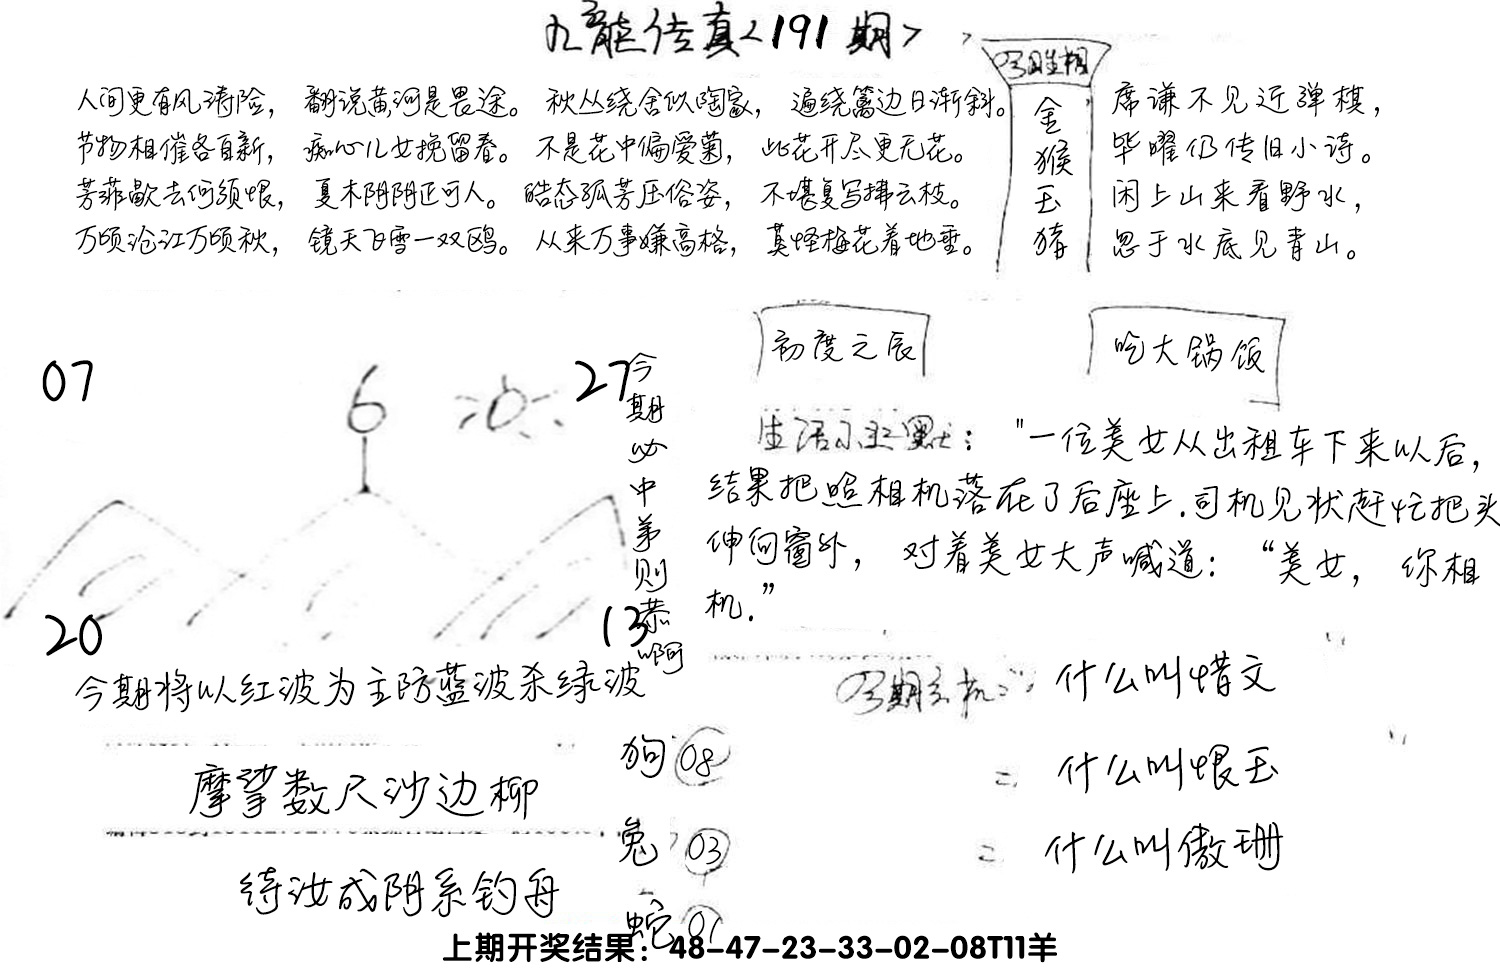 九龙传真<191期>
人间更有风涛险，翻说黄河是畏途。秋丛绕舍似陶家，遍绕篱边日渐斜。
节物相催各自新，痴心儿女挽留春。不是花中偏爱菊，此花开尽更无花。
芳菲歇去何须恨，夏木阴阴正可人。皓态孤芳压俗姿，不堪复写拂云枝。
万顷沧江万顷秋，镜天飞雪一双鸥。从来万事嫌高格，莫怪梅花着地垂。
金
猴
玉
猪
席谦不见近弹棋，
毕曜仍传旧小诗。
闲上山来看野水，
忽于水底见青山。
初度之辰
吃大锅饭
07
6
27
20
13
今期必中第则恭啊
生活小幽默："一位美女从出租车下来以后，
结果把照相机落在了后座上.司机见状赶忙把头
伸向窗外，对着美女大声喊道："美女，你相
机."
今期将以红波为主防蓝波杀绿波
什么叫惜文
什么叫恨玉
什么叫傲珊
摩挲数尺沙边柳
待汝成阴系钓舟
狗08
兔03
蛇01
上期开奖结果：48-47-23-33-02-08T11羊